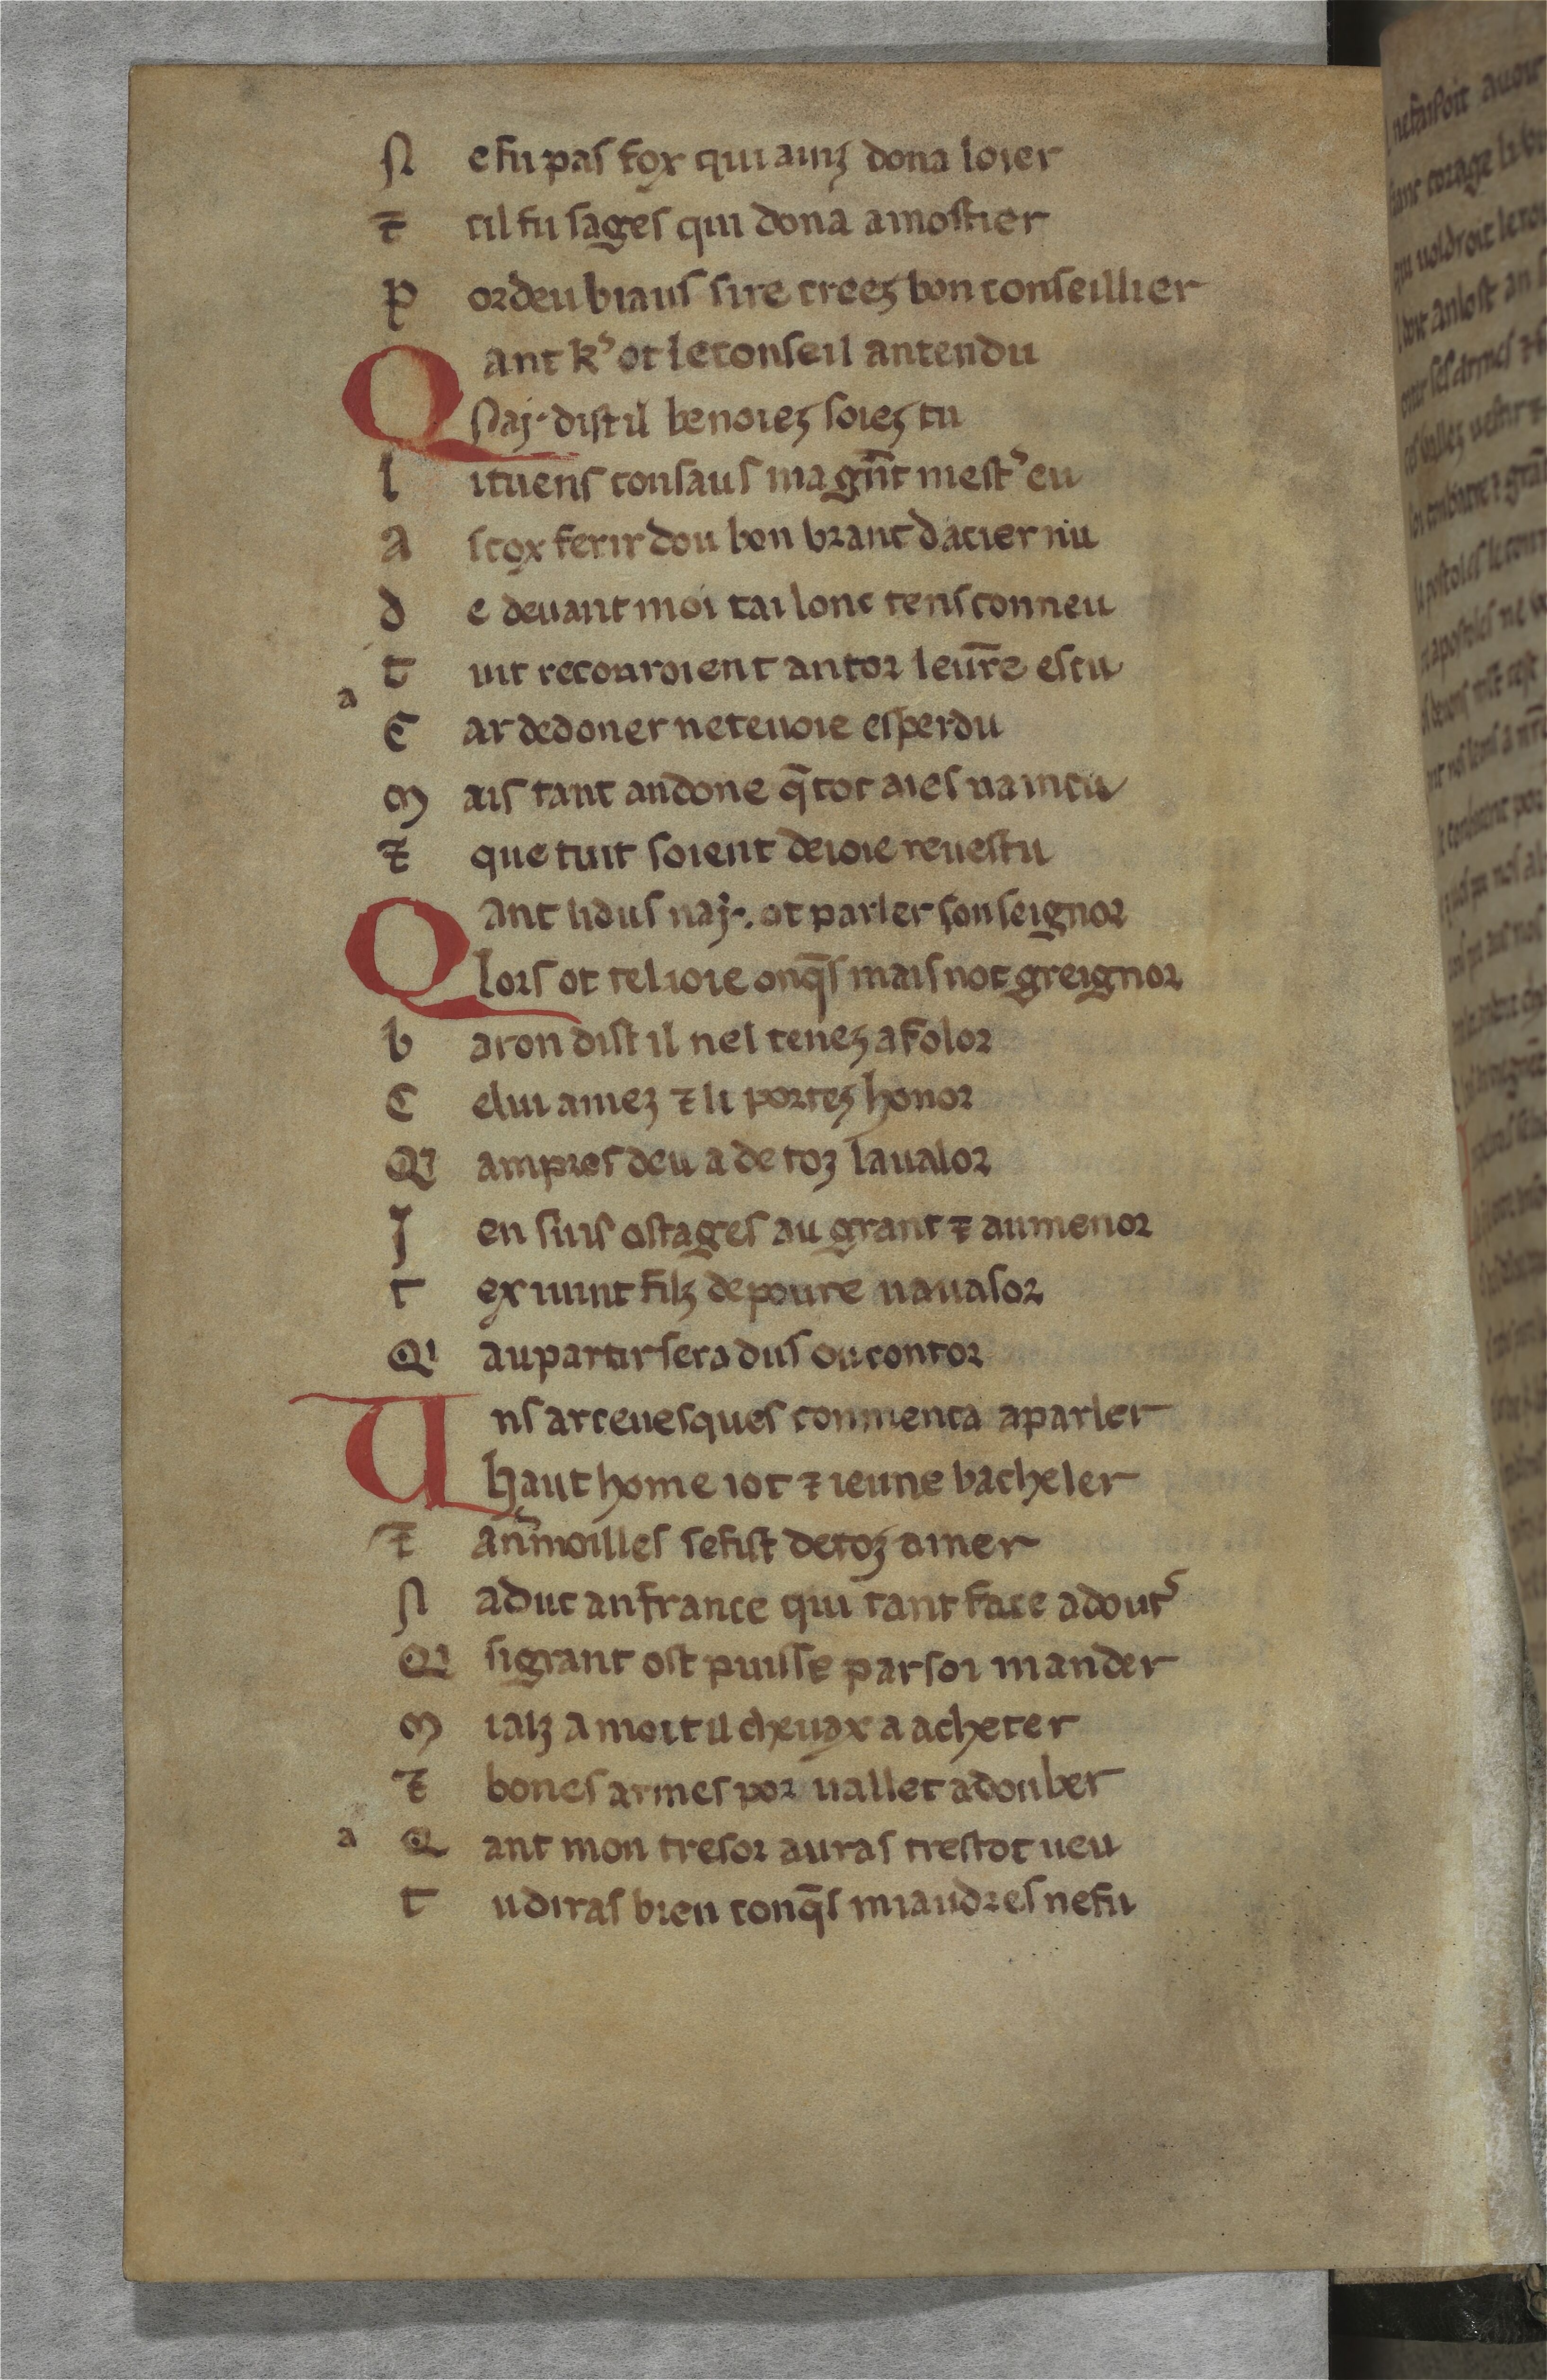 N e fu pas fox qui ainz dona loier
⁊ cil fu sages qui dona a mostier
P or deu biaus sire creez bon conseillier
Q ant k' ot le conseil antendu
Naj· dist il benoiez soiez tu
l i tuens consaus ma gñt mest' eu
A s cox ferir dou bon brant dacier nu
d e deuant moi tai lonc tens conneu
t uit recouroient antor leur̄e escu
a
C ar de doner ne te uoie esperdu
M ais tant an done q̄ tot aies uaincu
⁊ que tuit soient de ioie reuestu
Q ant li dus naj·. ot parler son seignor
lors ot tel ioie onq̄s mais not greignor
b aron dist il nel tenez a folor
C elui amez ⁊ li portez honor
Qi ampres deu a de toz la ualor
J en suis ostages au grant ⁊ au menor
t ex i uint filz de poure uauasor
Qi au partir sera dus ou contor
U ns arceuesques conmenca a parler
haut home i ot ⁊ ieune bacheler
⁊ an m̄oilles se fist de toz amer
N a duc an france qui tant face a dout'
Qi si grant ost puisse par soi mander
M ialz a moitil cheuax a acheter
⁊ bones armes por uallet adouber
a Q ant mon tresor auras trestot ueu
t u diras bien conq̄s miaudres ne fu